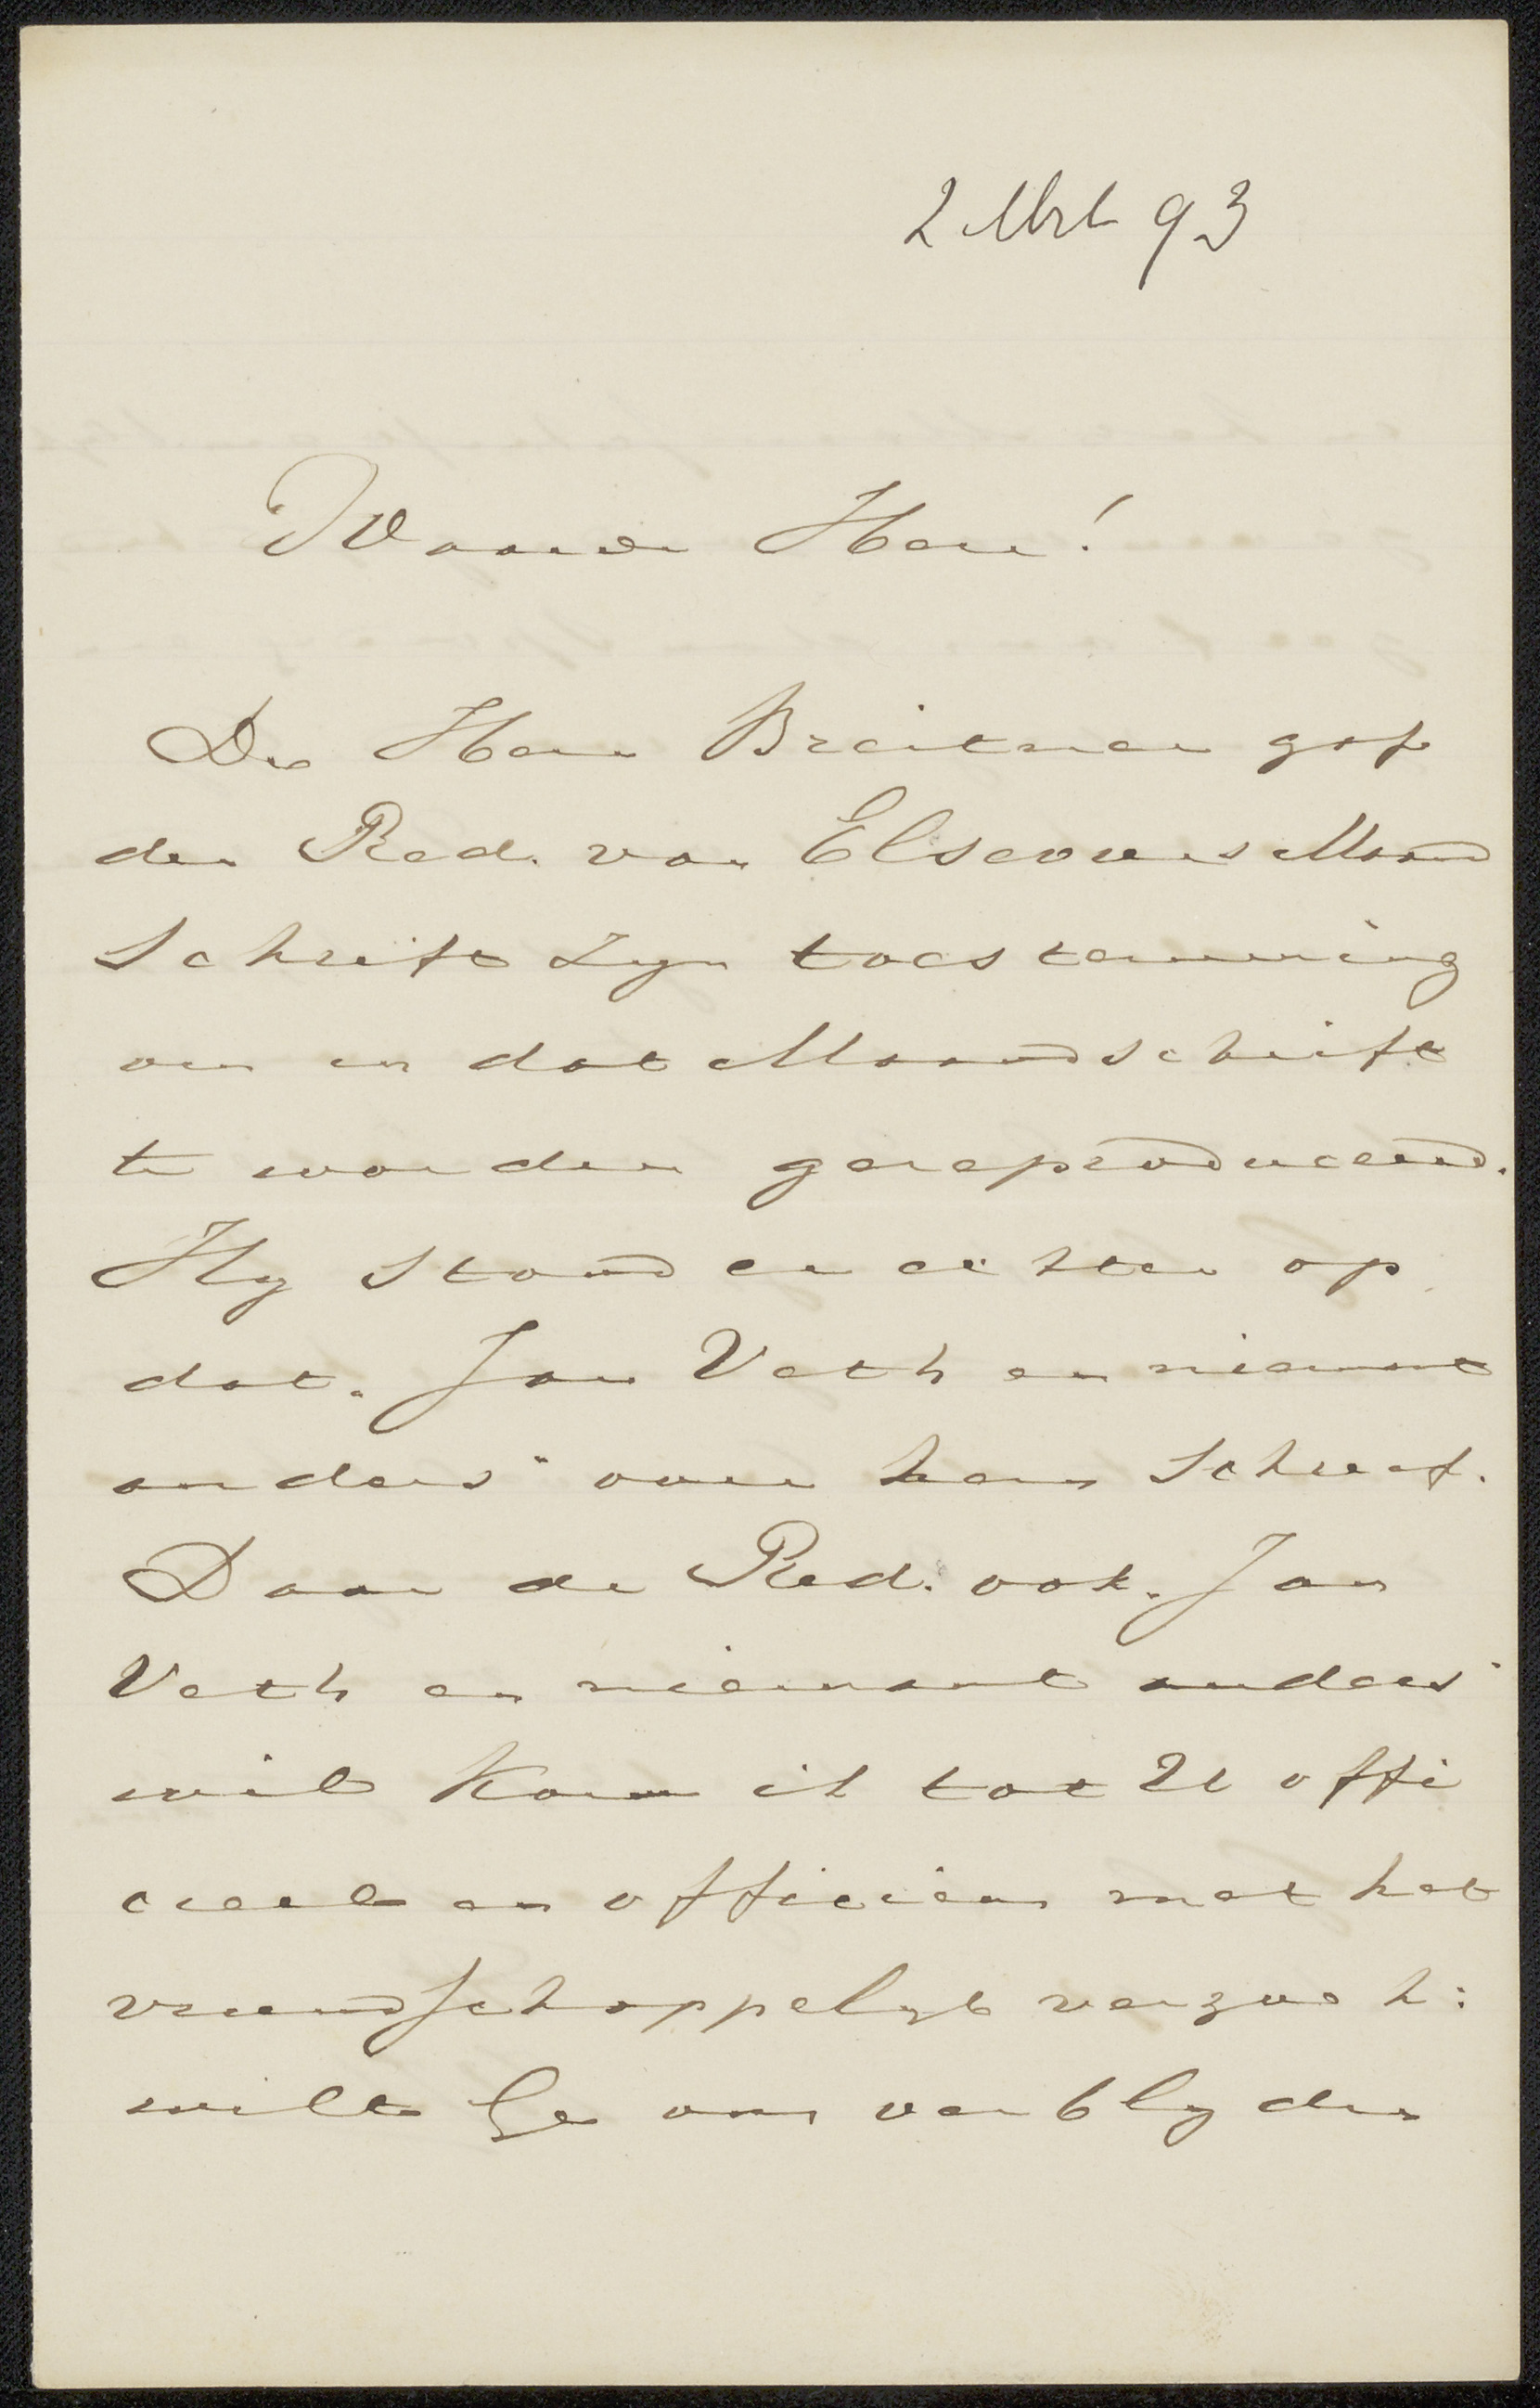 2 Mrt 93
Waarde Heer!
De Heer Breitner gaf
de Red. van Elseviers Maand
Schrift zyn toestemming
om in dat Maandschrift
te worden gereproduceerd.
Hy stond er echter op
dat „Jan Veth en niemant
anders" over hem schreef.
Daar de Red. ook „Jan
Veth en niemant anders"
wil kom ik tot U offi
cieel en officieus met het
vriendschappelyk verzoek:
wilt Ge ons verblyden